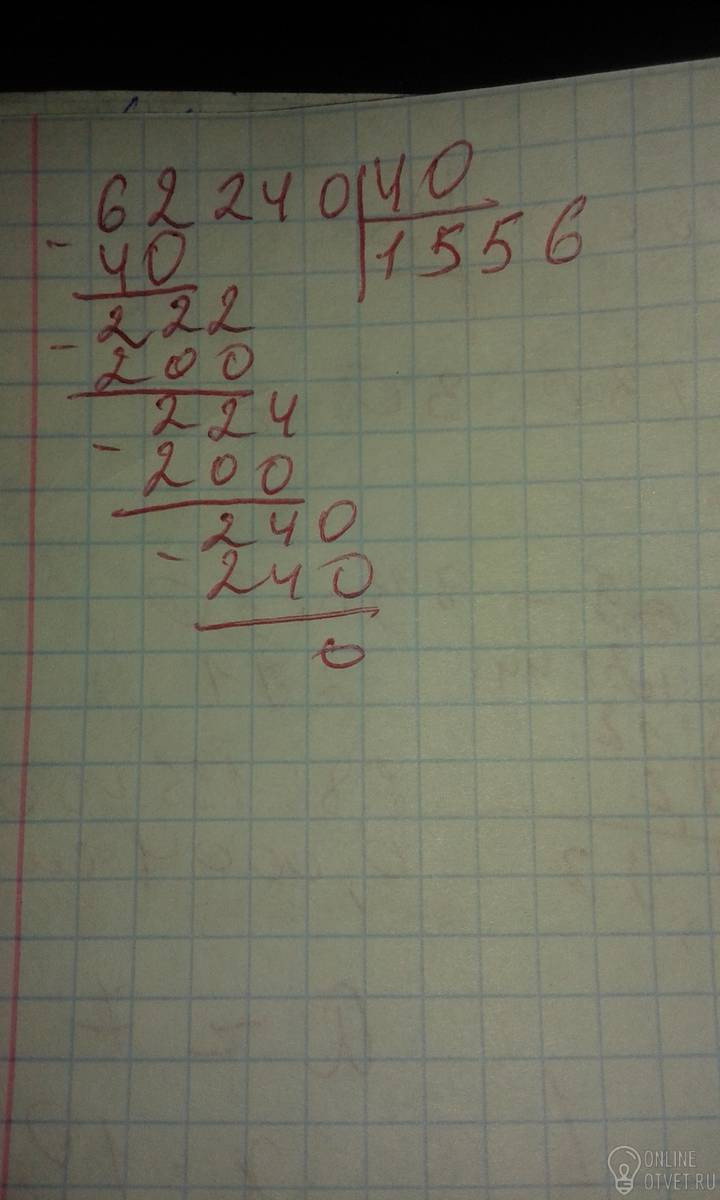 62240 40
- 40 1556
222
- 200
224
- 200
240
- 240
0
ONLINE
OTVET.RU